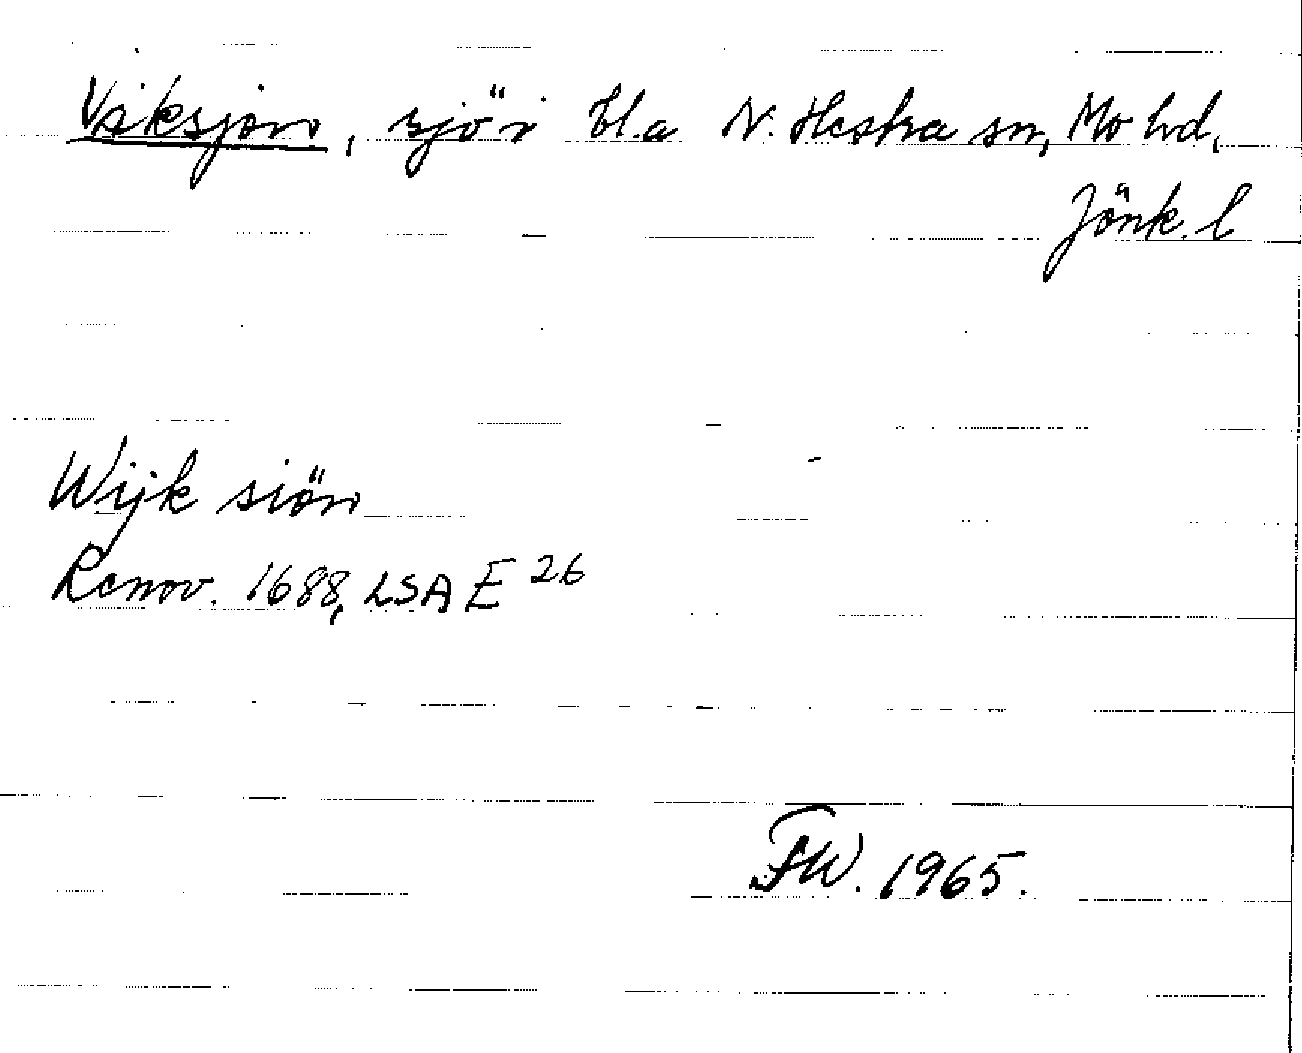 Viksjön, sjö i bl.a N. Hestra sn, Mo hd,
Jönk. l
Wijk siön
Renov. 1688, LSA E 26
FW. 1965.